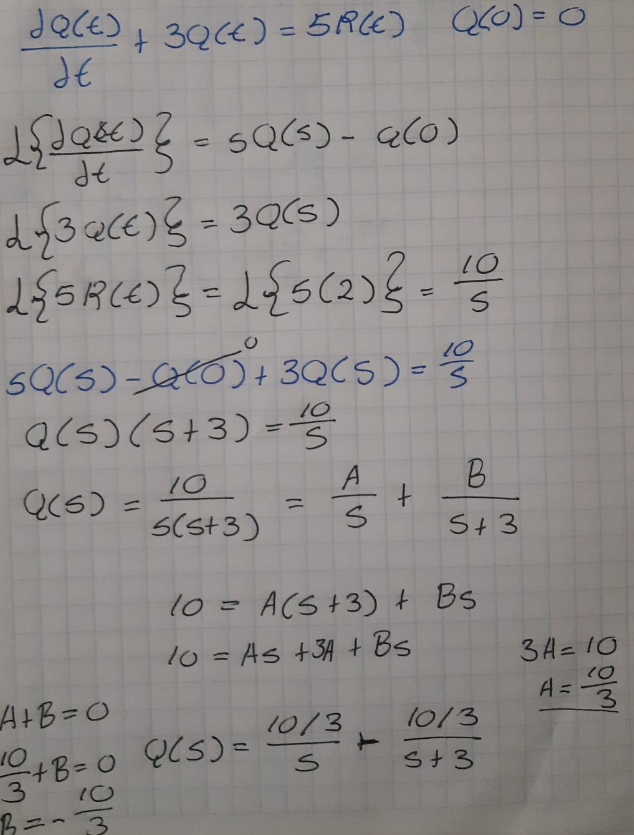 dQ(t)/dt + 3Q(t) = 5R(t) Q(0) = 0
L{dQ(t)/dt} = sQ(s) - Q(0)
L{3Q(t)} = 3Q(s)
L{5R(t)} = L{5(2)} = 10/s
sQ(s) - Q(0) 0 + 3Q(s) = 10/s
Q(s)(s+3) = 10/s
Q(s) = 10/s(s+3) = A/s + B/s+3
10 = A(s+3) + Bs
10 = As + 3A + Bs
3A = 10
A = 10/3
A+B = 0
10/3 + B = 0
B = - 10/3
Q(s) = 10/3/s - 10/3/s+3